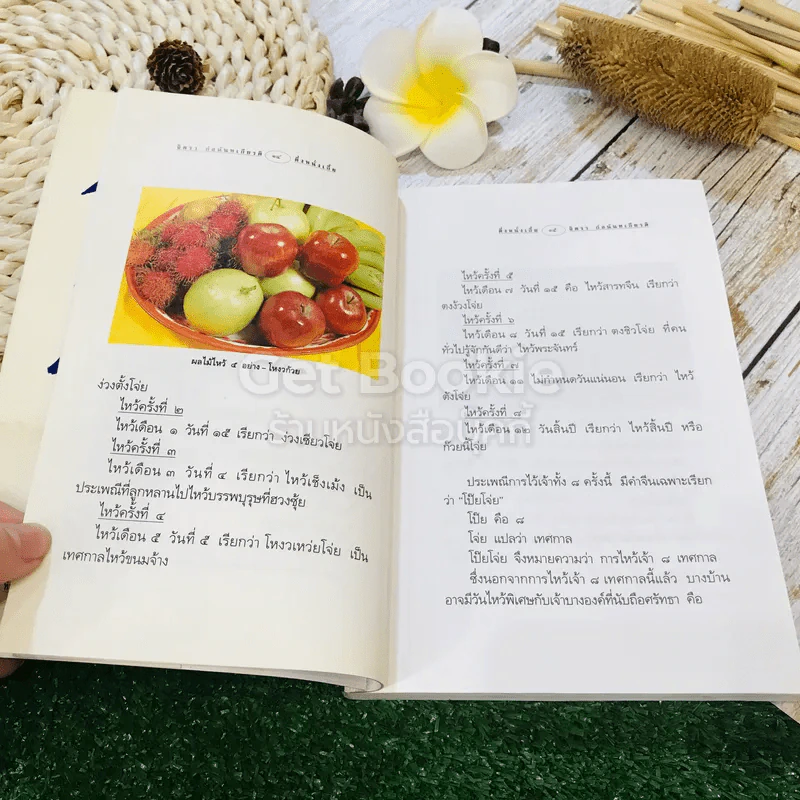 จิตรา ก่อนันทเกียรติ ๑๔ ตึ่งหนั่งเกี้ย
ผลไม้ไหว้ ๕ อย่าง - โหงวก้วย
ง่วงตั้งโจ่ย
ไหว้ครั้งที่ ๒
ไหว้เดือน ๑ วันที่ ๑๕ เรียกว่า ง่วงเซียวโจ่ย
ไหว้ครั้งที่ ๓
ไหว้เดือน ๓ วันที่ ๔ เรียกว่า ไหว้เช็งเม้ง เป็น
ประเพณีที่ลูกหลานไปไหว้บรรพบุรุษที่ฮวงซุ้ย
ไหว้ครั้งที่ ๔
ไหว้เดือน ๕ วันที่ ๕ เรียกว่า โหงวเหว่ยโจ่ย เป็น
เทศกาลไหว้ขนมจ้าง
ตึ่งหนั่งเกี้ย ๑๕ จิตรา ก่อนันทเกียรติ
ไหว้ครั้งที่ ๕
ไหว้เดือน ๗ วันที่ ๑๕ คือ ไหว้สารทจีน เรียกว่า
ตงง้วงโจ่ย
ไหว้ครั้งที่ ๖
ไหว้เดือน ๘ วันที่ ๑๕ เรียกว่า ตงชิวโจ่ย ที่คน
ทั่วไปรู้จักกันดีว่า ไหว้พระจันทร์
ไหว้ครั้งที่ ๗
ไหว้เดือน ๑๑ ไม่กำหนดวันแน่นอน เรียกว่า ไหว้
ตังโจ่ย
ไหว้ครั้งที่ ๘
ไหว้เดือน ๑๒ วันสิ้นปี เรียกว่า ไหว้สิ้นปี หรือ
ก๊วยนี้โจ่ย
ประเพณีการไว้เจ้าทั้ง ๘ ครั้งนี้ มีคำจีนเฉพาะเรียก
ว่า "โป๊ยโจ่ย"
โป๊ย คือ ๘
โจ่ย แปลว่า เทศกาล
โป๊ยโจ่ย จึงหมายความว่า การไหว้เจ้า ๘ เทศกาล
ซึ่งนอกจากการไหว้เจ้า ๘ เทศกาลนี้แล้ว บางบ้าน
อาจมีวันไหว้พิเศษกับเจ้าบางองค์ที่นับถือศรัทธา คือ
Get Bookie
ร้านหนังสือบุ๊คกี้